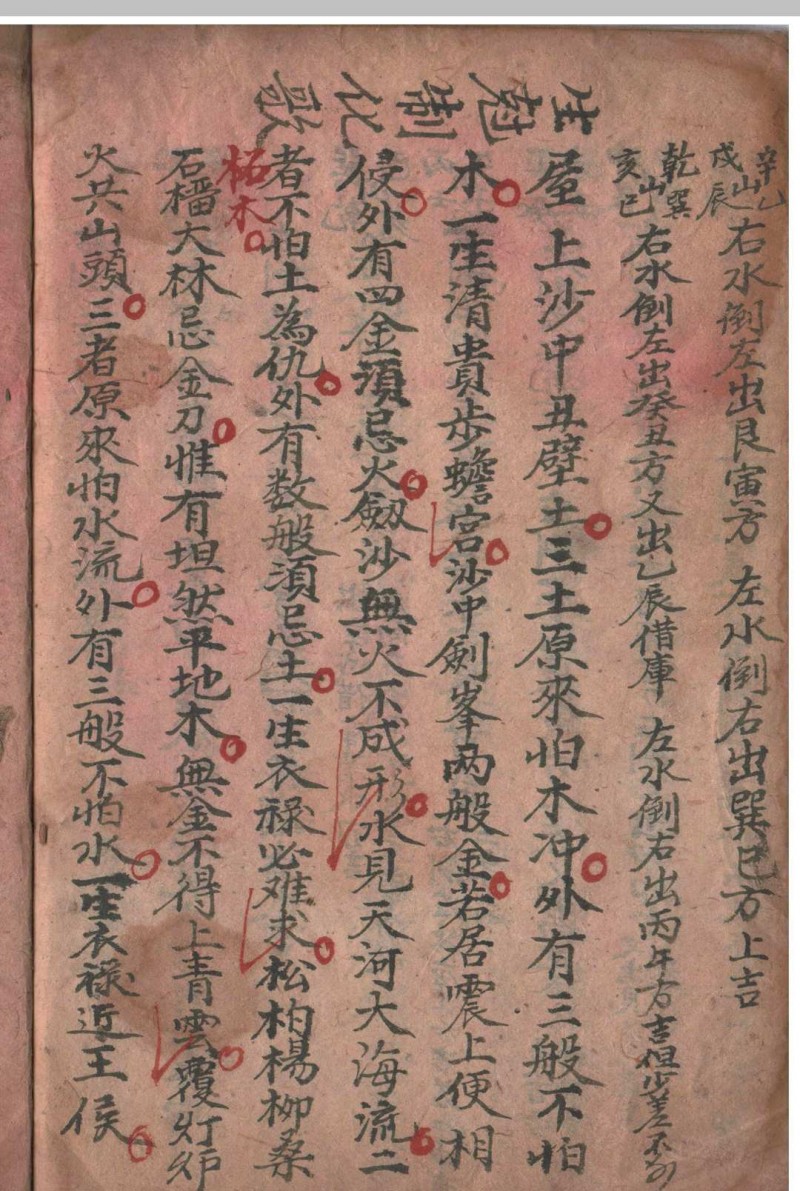 辛乙
戌山辰右水倒左出艮寅方 左水倒右出巽巳方上吉
乾巽
亥山巳右水倒左出癸丑方又出乙辰借庫 左水倒右出丙午方吉但少差不
生尅制化歌
屋上沙中丑壁土三土原來怕木冲外有三般不怕
木一生清貴步蟾宮沙中劍峯两般金若居震上便相
侵外有四金須忌火劔沙無火不成形水見天河大海流二
者不怕土為仇外有数般須忌土一生衣禄必难求松柏楊柳桑
柘木
石榴大林忌金刀惟有坦然平地木無金不得上青雲覆灯炉
火共山頭三者原來怕水流外有三般不怕水一生衣禄近王侯